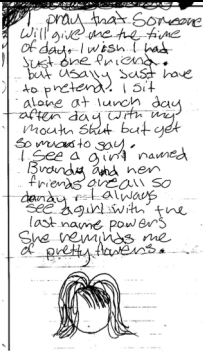 I pray that Someone
will give me the time
of day. I wish I had
just one friend.
but usally Just have
to pretend. I sit
alone at lunch day
after day with my
mouth shut but yet
so much to say.
I see a girl named
Brandy and her
friends are all so
dandy. I always
see a girl with the
last name powers
She reminds me
of pretty flowers.